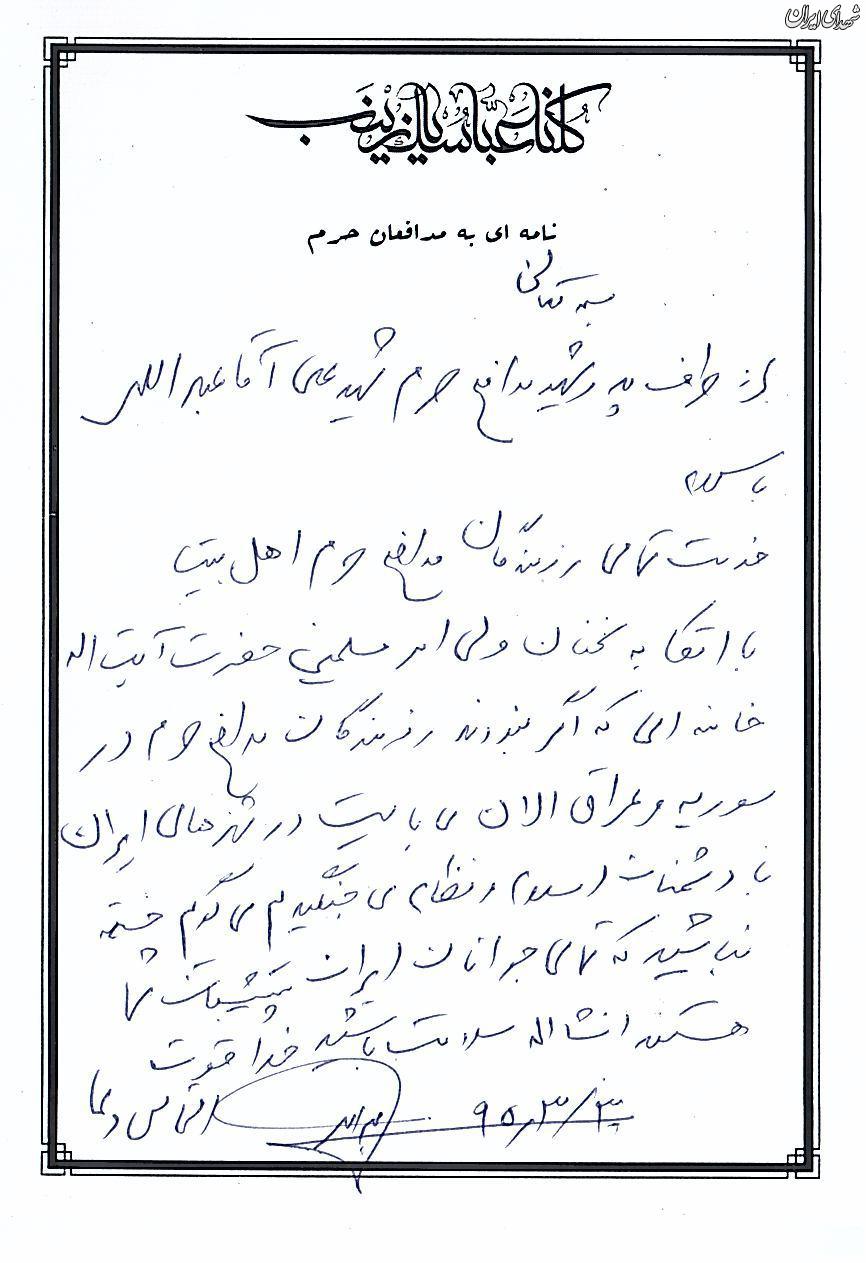 شهدای ایران
کلنا عباسک یا زینب
نامه ای به مدافعان حرم
بسمه تعالی
از طرف پدر شهید مدافع حرم شهید علی آقا عبداللهی
با سلام
خدمت تمامی رزمندگان مدافع حرم اهل بیت
با اتکا به سخنان ولی امر مسلمین حضرت آیت اله
خامنه ای که اگر نبودند رزمندگان مدافع حرم در
سوریه و عراق الان می بایست در شهرهای ایران
با دشمنان اسلام و نظام می جنگیدیم می گویم خسته
نباشید که تمامی جوانان ایران پشتیبان شما
هستند انشااله سلامت باشید خدا قوت
التماس دعا
۹۵/۳/۳۰